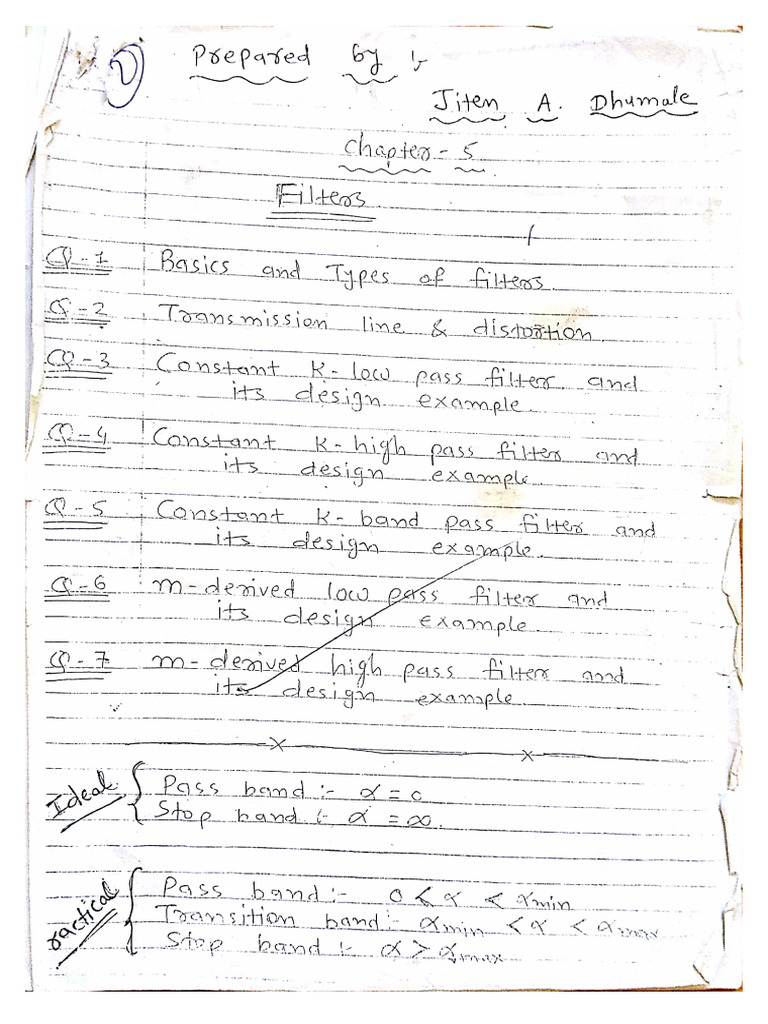 1)
Prepared by :-
Jiten A. Dhumale
Chapter - 5
Filters
Q-1 Basics and Types of filters
Q-2 Transmission line & distortion
Q-3 Constant K-low pass filter and
its design example.
Q-4 Constant K-high pass filter and
its design example
Q-5 Constant K-band pass filter and
its design example.
Q-6 m-derived low pass filter and
its design example
Q-7 m-derived high pass filter and
its design example
Ideal
Pass band :- α = 0
Stop band :- α = ∞.
ractical
Pass band :- 0 < α < αmin
Transition band :- αmin < α < αmax
Stop band :- α > αmax